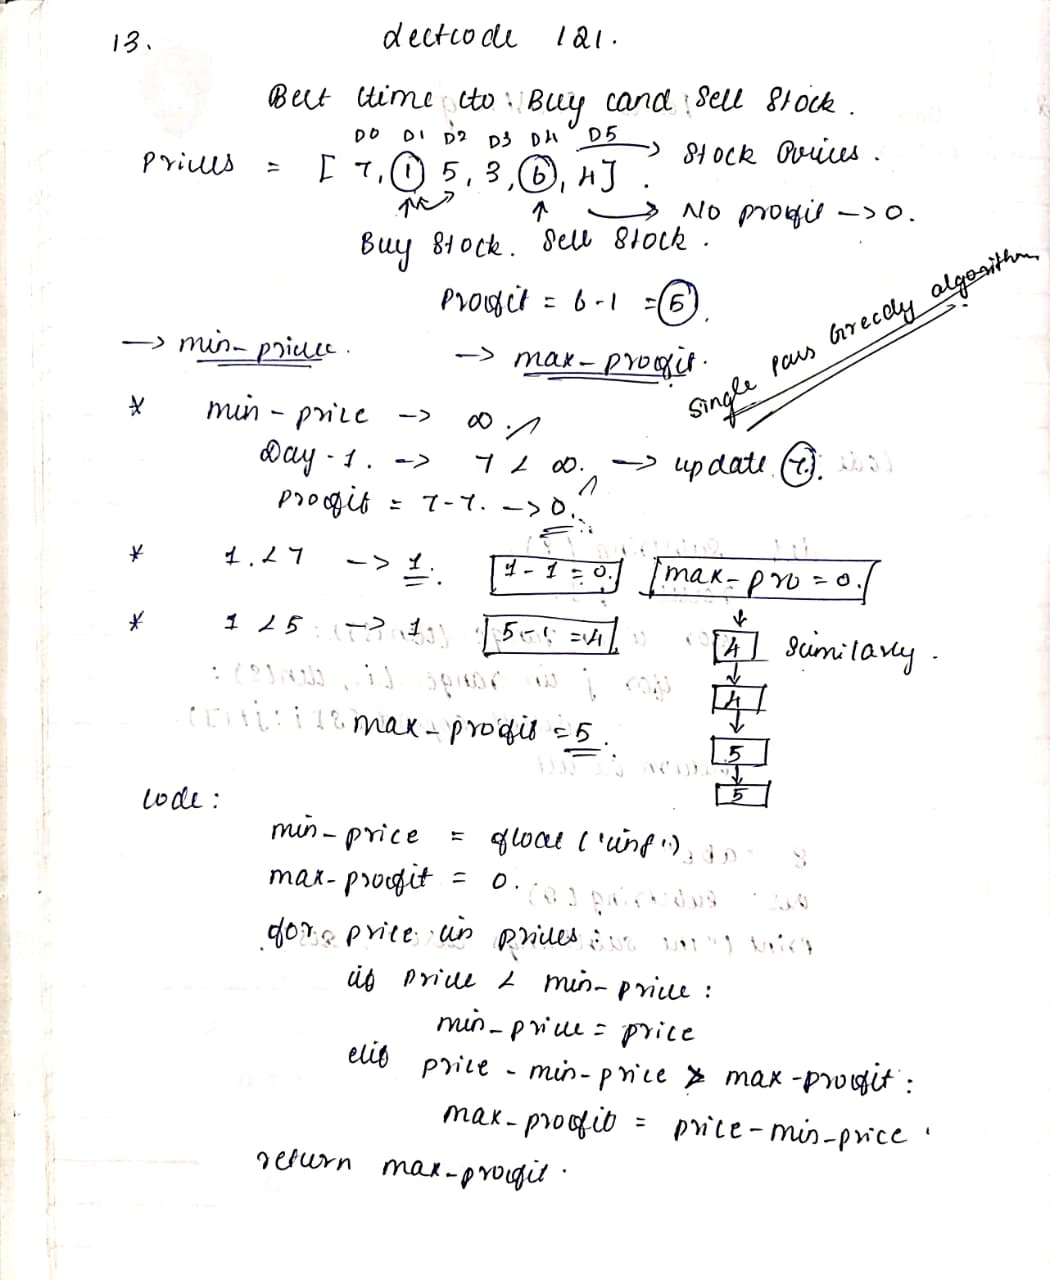 13. Leetcode 121.
Best time to Buy and Sell Stock.
D0 D1 D2 D3 D4 D5
Prices = [ 7, 1 5, 3, 6, 4 ] . → Stock Prices .
→ No profit → 0.
Buy Stock. Sell Stock .
Profit = 6-1 = 5.
→ min-price. → max-profit.
Single pass Greedy algorithm
* min - price → ∞.
Day - 1. → 7 < ∞. → update 7.
profit = 7-7. → 0.
* 1. < 7 → 1. 1 - 1 = 0. max- pro = 0.
* 1 < 5 → 1. 5-1 = 4 4 Similarly .
4
max - profit = 5. 5
5
Code :
min - price = float ('inf')
max- profit = 0.
for price in prices :
if price < min- price :
min - price = price
elif price - min-price > max -profit :
max- profit = price - min-price .
return max-profit .